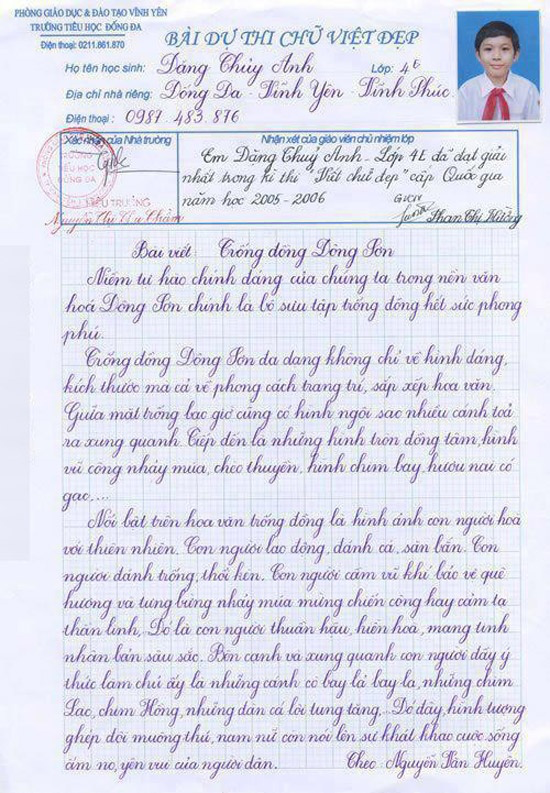 PHÒNG GIÁO DỤC & ĐÀO TẠO VĨNH YÊN
TRƯỜNG TIỂU HỌC ĐỐNG ĐA
Điện thoại: 0211.861.870
BÀI DỰ THI CHỮ VIỆT ĐẸP
Họ tên học sinh: Đặng Thuỳ Anh Lớp: 4E
Địa chỉ nhà riêng: Đống Đa - Vĩnh Yên - Vĩnh Phúc.
Điện thoại : 0987 483 876
Xác nhận của Nhà trường
HIỆU TRƯỞNG
Nhận xét của giáo viên chủ nhiệm lớp
Em Đặng Thuỳ Anh - Lớp 4E đã đạt giải
nhất trong kì thi "Viết chữ đẹp" cấp Quốc gia
năm học 2005 - 2006
GVCN
Phan Thị Hường
Bài viết: Trống đồng Đông Sơn
Niềm tự hào chính đáng của chúng ta trong nền văn
hoá Đông Sơn chính là bộ sưu tập trống đồng hết sức phong
phú.
Trống đồng Đông Sơn đa dạng không chỉ về hình dáng,
kích thước mà cả về phong cách trang trí, sắp xếp hoa văn.
Giữa mặt trống bao giờ cũng có hình ngôi sao nhiều cánh toả
ra xung quanh. Tiếp đến là những hình tròn đồng tâm, hình
vũ công nhảy múa, chèo thuyền, hình chim bay, hươu nai có
gạc....
Nổi bật trên hoa văn trống đồng là hình ảnh con người hoà
với thiên nhiên. Con người lao động, đánh cá, săn bắn. Con
người đánh trống, thổi kèn. Con người cầm vũ khí bảo vệ quê
hương và tưng bừng nhảy múa mừng chiến công hay cảm tạ
thần linh, Đó là con người thuần hậu, hiền hoà, mang tính
nhân bản sâu sắc. Bên cạnh và xung quanh con người đầy ý
thức làm chủ ấy là những cánh cò bay lả bay la, những chim
Lạc, chim Hồng, những đàn cá lội tung tăng, Đó đây, hình tượng
ghép đôi muông thú, nam nữ còn nói lên sự khát khao cuộc sống
ấm no, yên vui của người dân. Theo: Nguyễn Văn Huyên.